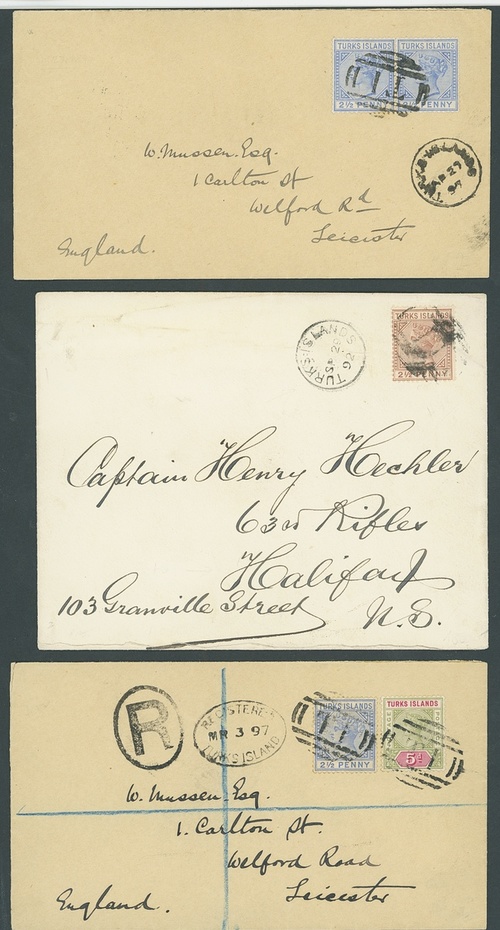 TURKS ISLANDS TURKS ISLANDS
2½ PENNY 2½ PENNY
T11
TURKS ISLANDS
AP 27
97
W. Mussen. Esq.
1 Carlton St
Welford Rd
Leicester
England.
TURKS ISLANDS
2½ PENNY
TURKS ISLANDS
92
Captain Henry Hechler
63rd Rifles
Halifax
103 Granville Street N.S.
R
REGISTERED
MR 3 97
TURKS ISLAND
TURKS ISLANDS TURKS ISLANDS
POSTAGE
2½ PENNY 5d
W. Mussen. Esq.
1. Carlton St.
Welford Road
Leicester
England.